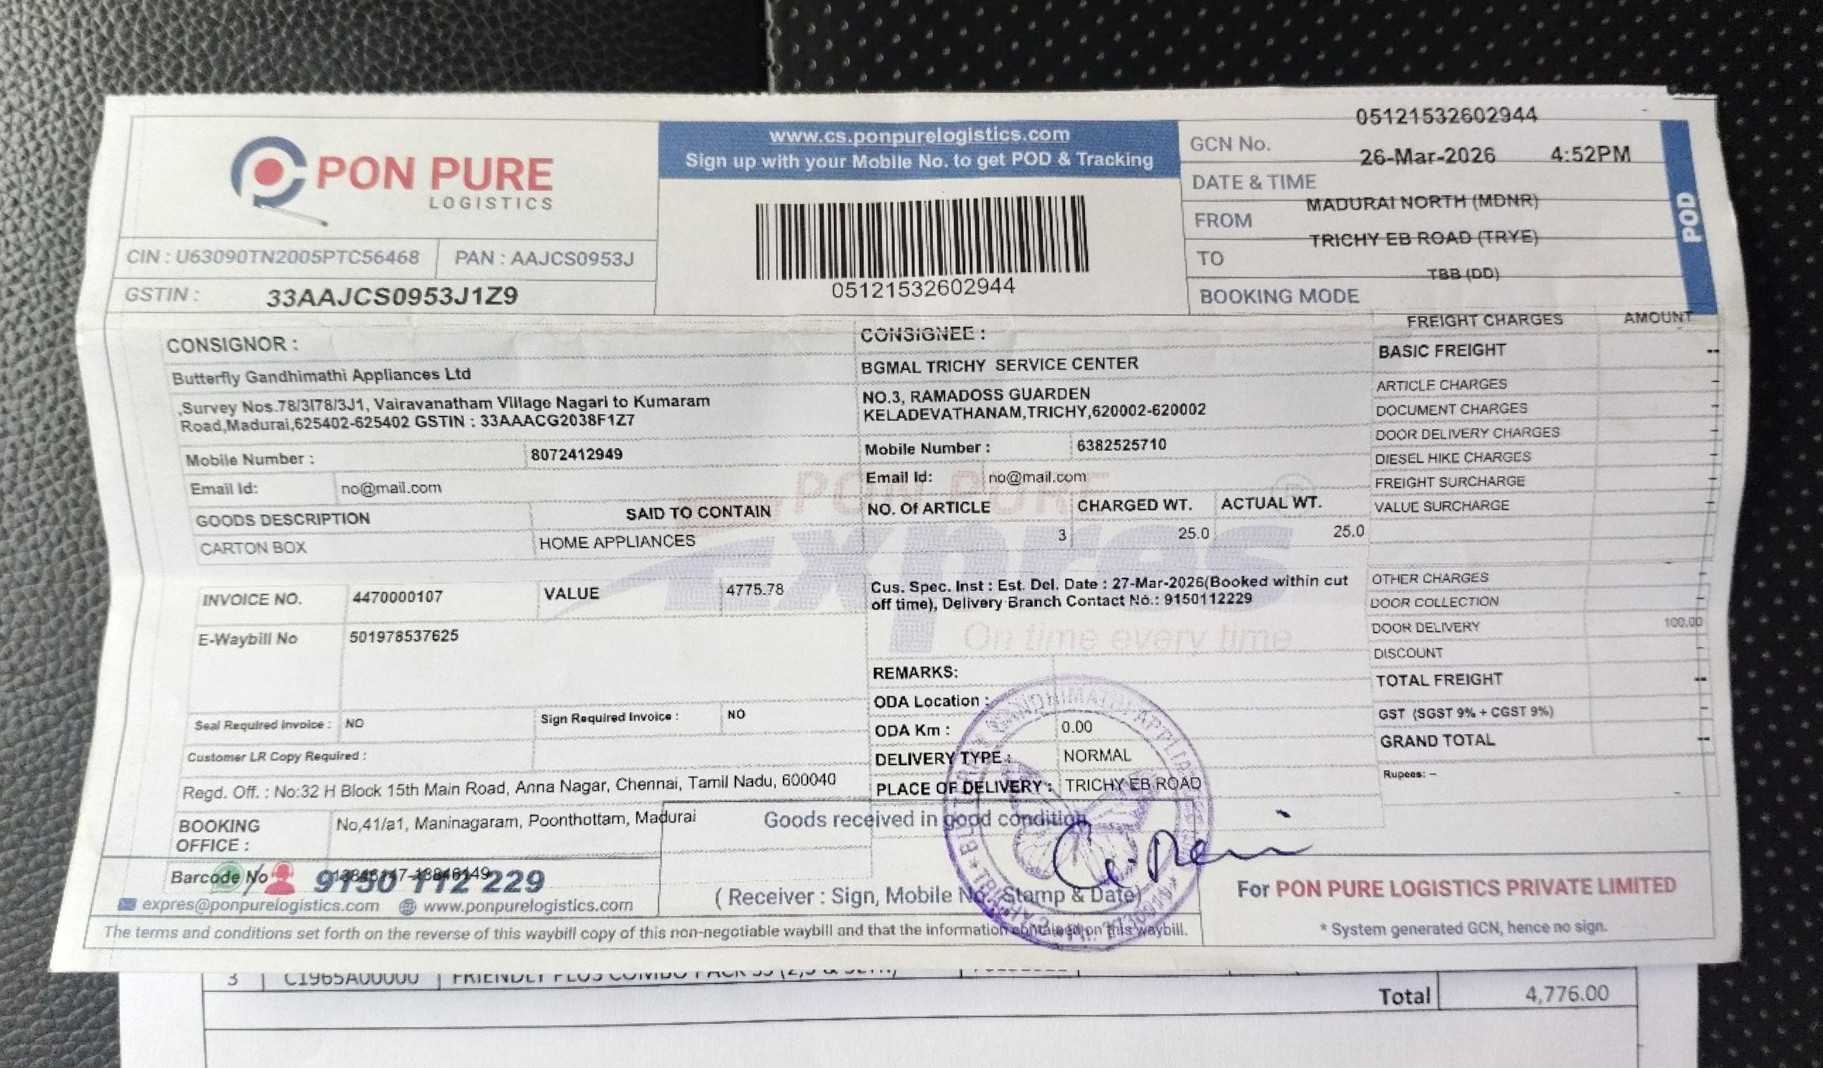 PON PURE
LOGISTICS
www.cs.ponpurelogistics.com
Sign up with your Mobile No. to get POD & Tracking
05121532602944
GCN No. 05121532602944
DATE & TIME 26-Mar-2026 4:52PM
FROM MADURAI NORTH (MDNR)
TO TRICHY EB ROAD (TRYE)
BOOKING MODE TBB (DD)
POD
CIN : U63090TN2005PTC56468 PAN : AAJCS0953J
GSTIN : 33AAJCS0953J1Z9
CONSIGNOR :
Butterfly Gandhimathi Appliances Ltd
,Survey Nos.78/3I78/3J1, Vairavanatham Village Nagari to Kumaram
Road,Madurai,625402-625402 GSTIN : 33AAACG2038F1Z7
Mobile Number : 8072412949
Email Id: no@mail.com
GOODS DESCRIPTION SAID TO CONTAIN
CARTON BOX HOME APPLIANCES
INVOICE NO. 4470000107 VALUE 4775.78
E-Waybill No 501978537625
Seal Required Invoice : NO Sign Required Invoice : NO
Customer LR Copy Required :
Regd. Off. : No:32 H Block 15th Main Road, Anna Nagar, Chennai, Tamil Nadu, 600040
BOOKING OFFICE : No,41/a1, Maninagaram, Poonthottam, Madurai
Barcode No 13846147-13846149
9150 112 229
expres@ponpurelogistics.com www.ponpurelogistics.com
CONSIGNEE :
BGMAL TRICHY SERVICE CENTER
NO.3, RAMADOSS GUARDEN
KELADEVATHANAM,TRICHY,620002-620002
Mobile Number : 6382525710
Email Id: no@mail.com
NO. Of ARTICLE CHARGED WT. ACTUAL WT.
3 25.0 25.0
PON PURE
expres
On time every time
Cus. Spec. Inst : Est. Del. Date : 27-Mar-2026(Booked within cut
off time), Delivery Branch Contact No.: 9150112229
REMARKS:
ODA Location :
ODA Km : 0.00
DELIVERY TYPE : NORMAL
PLACE OF DELIVERY : TRICHY EB ROAD
Goods received in good condition
( Receiver : Sign, Mobile No, Stamp & Date)
FREIGHT CHARGES AMOUNT
BASIC FREIGHT --
ARTICLE CHARGES -
DOCUMENT CHARGES -
DOOR DELIVERY CHARGES -
DIESEL HIKE CHARGES -
FREIGHT SURCHARGE -
VALUE SURCHARGE -
OTHER CHARGES -
DOOR COLLECTION -
DOOR DELIVERY 100.00
DISCOUNT -
TOTAL FREIGHT --
GST (SGST 9% + CGST 9%) -
GRAND TOTAL --
Rupees: –
For PON PURE LOGISTICS PRIVATE LIMITED
* System generated GCN, hence no sign.
The terms and conditions set forth on the reverse of this waybill copy of this non-negotiable waybill and that the information contained on this waybill.
3 C1965A00000 FRIENDLY PLUS COMBO PACK
Total 4,776.00